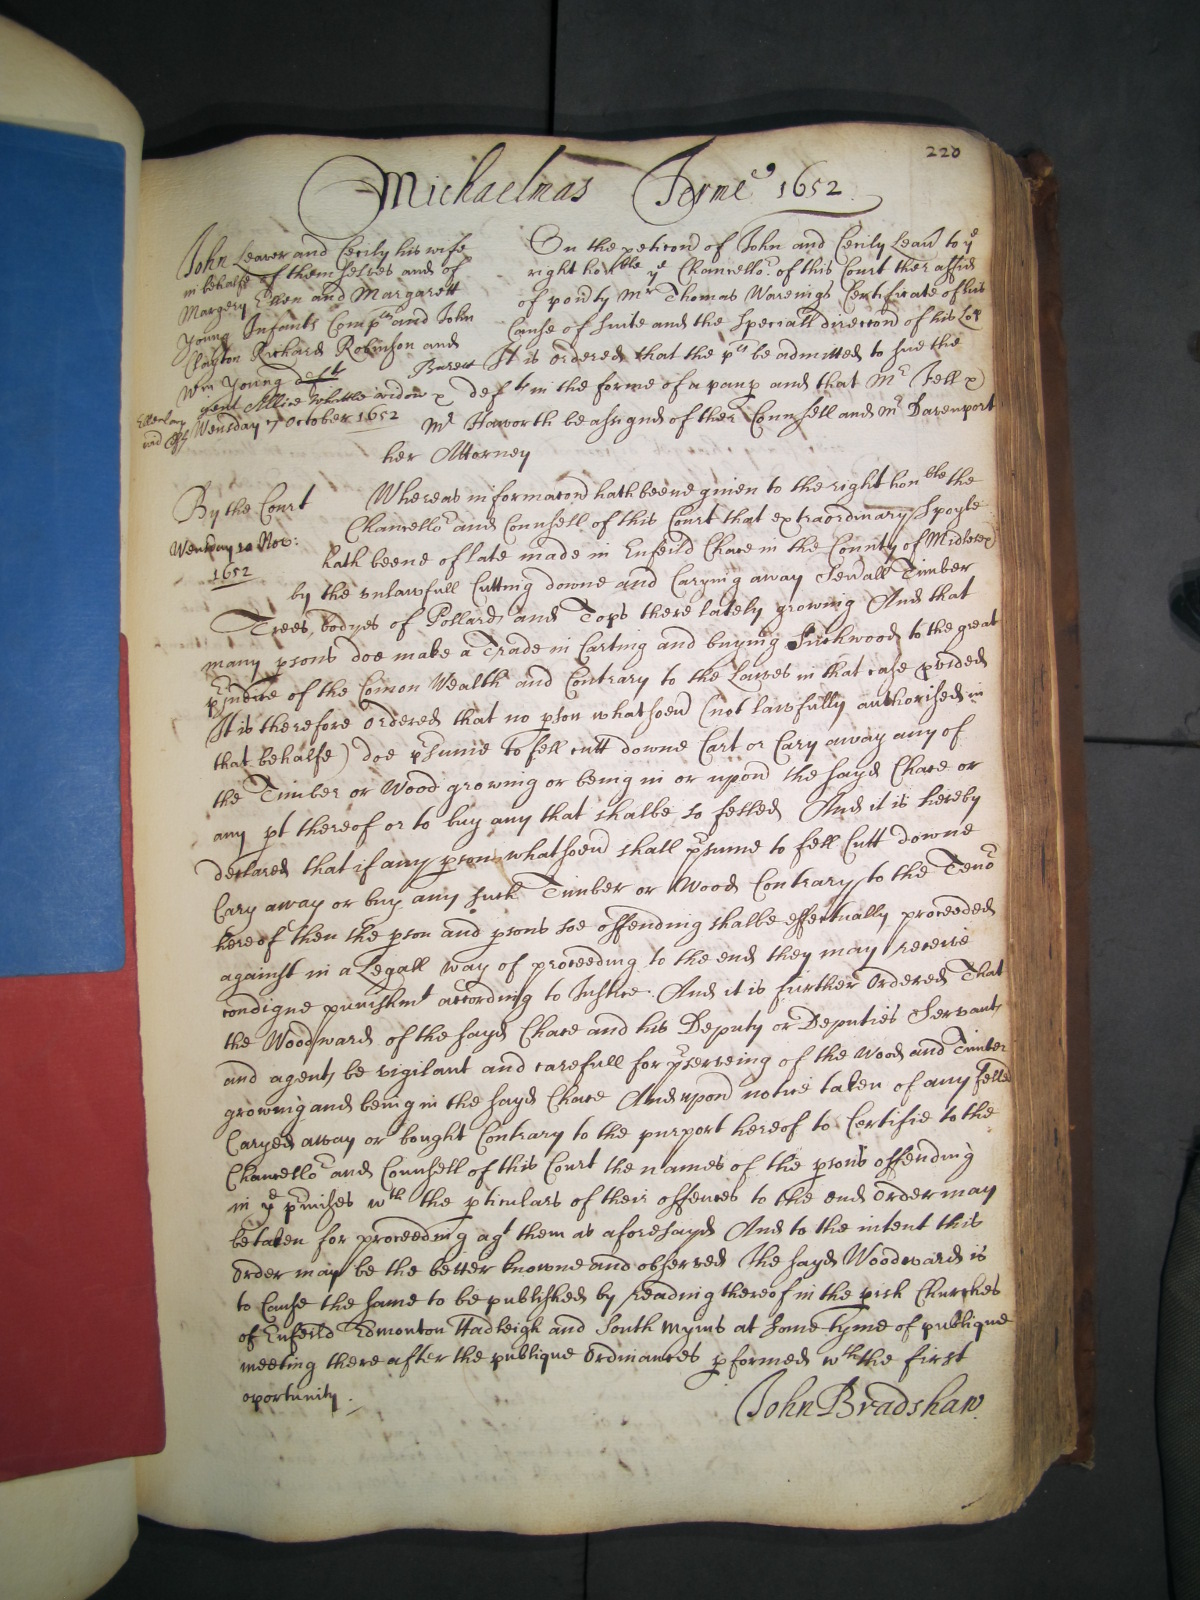 220
Michaelmas Terme 1652
John Leaver and Cecily his wife
in behalfe of themselves and of
Margery Ellen and Margarett
Young Infants Comp^lts and John
Clayton Richard Robinson and
Wm Young def^ts
gent Allice Whittle widow
Wensday 27 October 1652
On the peticon of John and Cecily Leav^r to y^e
right hon^ble y^e Chancello^r of this Court ther affid
of pov^rty M^r Thomas Warenigs Certificate of his
Cause of suite and the speciall direccon of his Lo^p
It is ordered that the p^lts be admitted to sue the
def^ts in the forme of a paup and that M^r Fell
M^r Haworth be assigned of ther Counsell and M^r Davenport
her Attorney
By the Court
Wensday 10 Nov:
1652
Whereas informacon hath beene given to the right hon^ble the
Chancello^r and Counsell of this Court that extraordinary Spoyle
hath beene of late made in Enfeild Chace in the County of Midlesex
by the unlawfull Cutting downe and Carying away Sevrall Timber
Trees, bodyes of Pollards and Tops there lately growing And that
many psons doe make a Trade in Carting and buying Such wood to the great
p^rjudice of the Comon Wealth and Contrary to the Lawes in that case p^rvided
It is therefore ordered that no pson whatsoev^r (not lawfully authorised in
that behalfe) doe p^rsume to fell cutt downe Cart or Cary away any of
the Timber or Wood growing or being in or upon the sayd Chace or
any pt thereof or to buy any that shalbe so felled And it is hereby
declared that if any pson whatsoev^r shall p^rsume to fell Cutt downe
Cary away or buy any such Timber or Wood Contrary to the Teno^r
hereof then the pson and psons soe offending shalbe effectually proceeded
against in a Legall way of proceeding to the end they may receive
condigne punishm^t according to Justice. And it is further Ordered That
the Woodward of the sayd Chace and his Deputy or Deputies Servants
and agents be vigilant and carefull for p^rserveing of the Wood and Timber
growing and being in the sayd Chace And upon notice taken of any felled
Caryed away or bought Contrary to the purport hereof to Certifie to the
Chancello^r and Counsell of this Court the names of the psons offending
in y^e p^rmises w^th the pticulars of their offences to the end Order may
be taken for proceeding ag^t them as aforesayd And to the intent this
Order may be the better knowne and observed the sayd Woodward is
to Cause the same to be published by reading thereof in the pish Churches
of Enfeild Edmonton Hadleigh and South Myms at some tyme of publique
meeting there after the publique Ordinances pformed w^th the first
oportunity.
John Bradshaw.